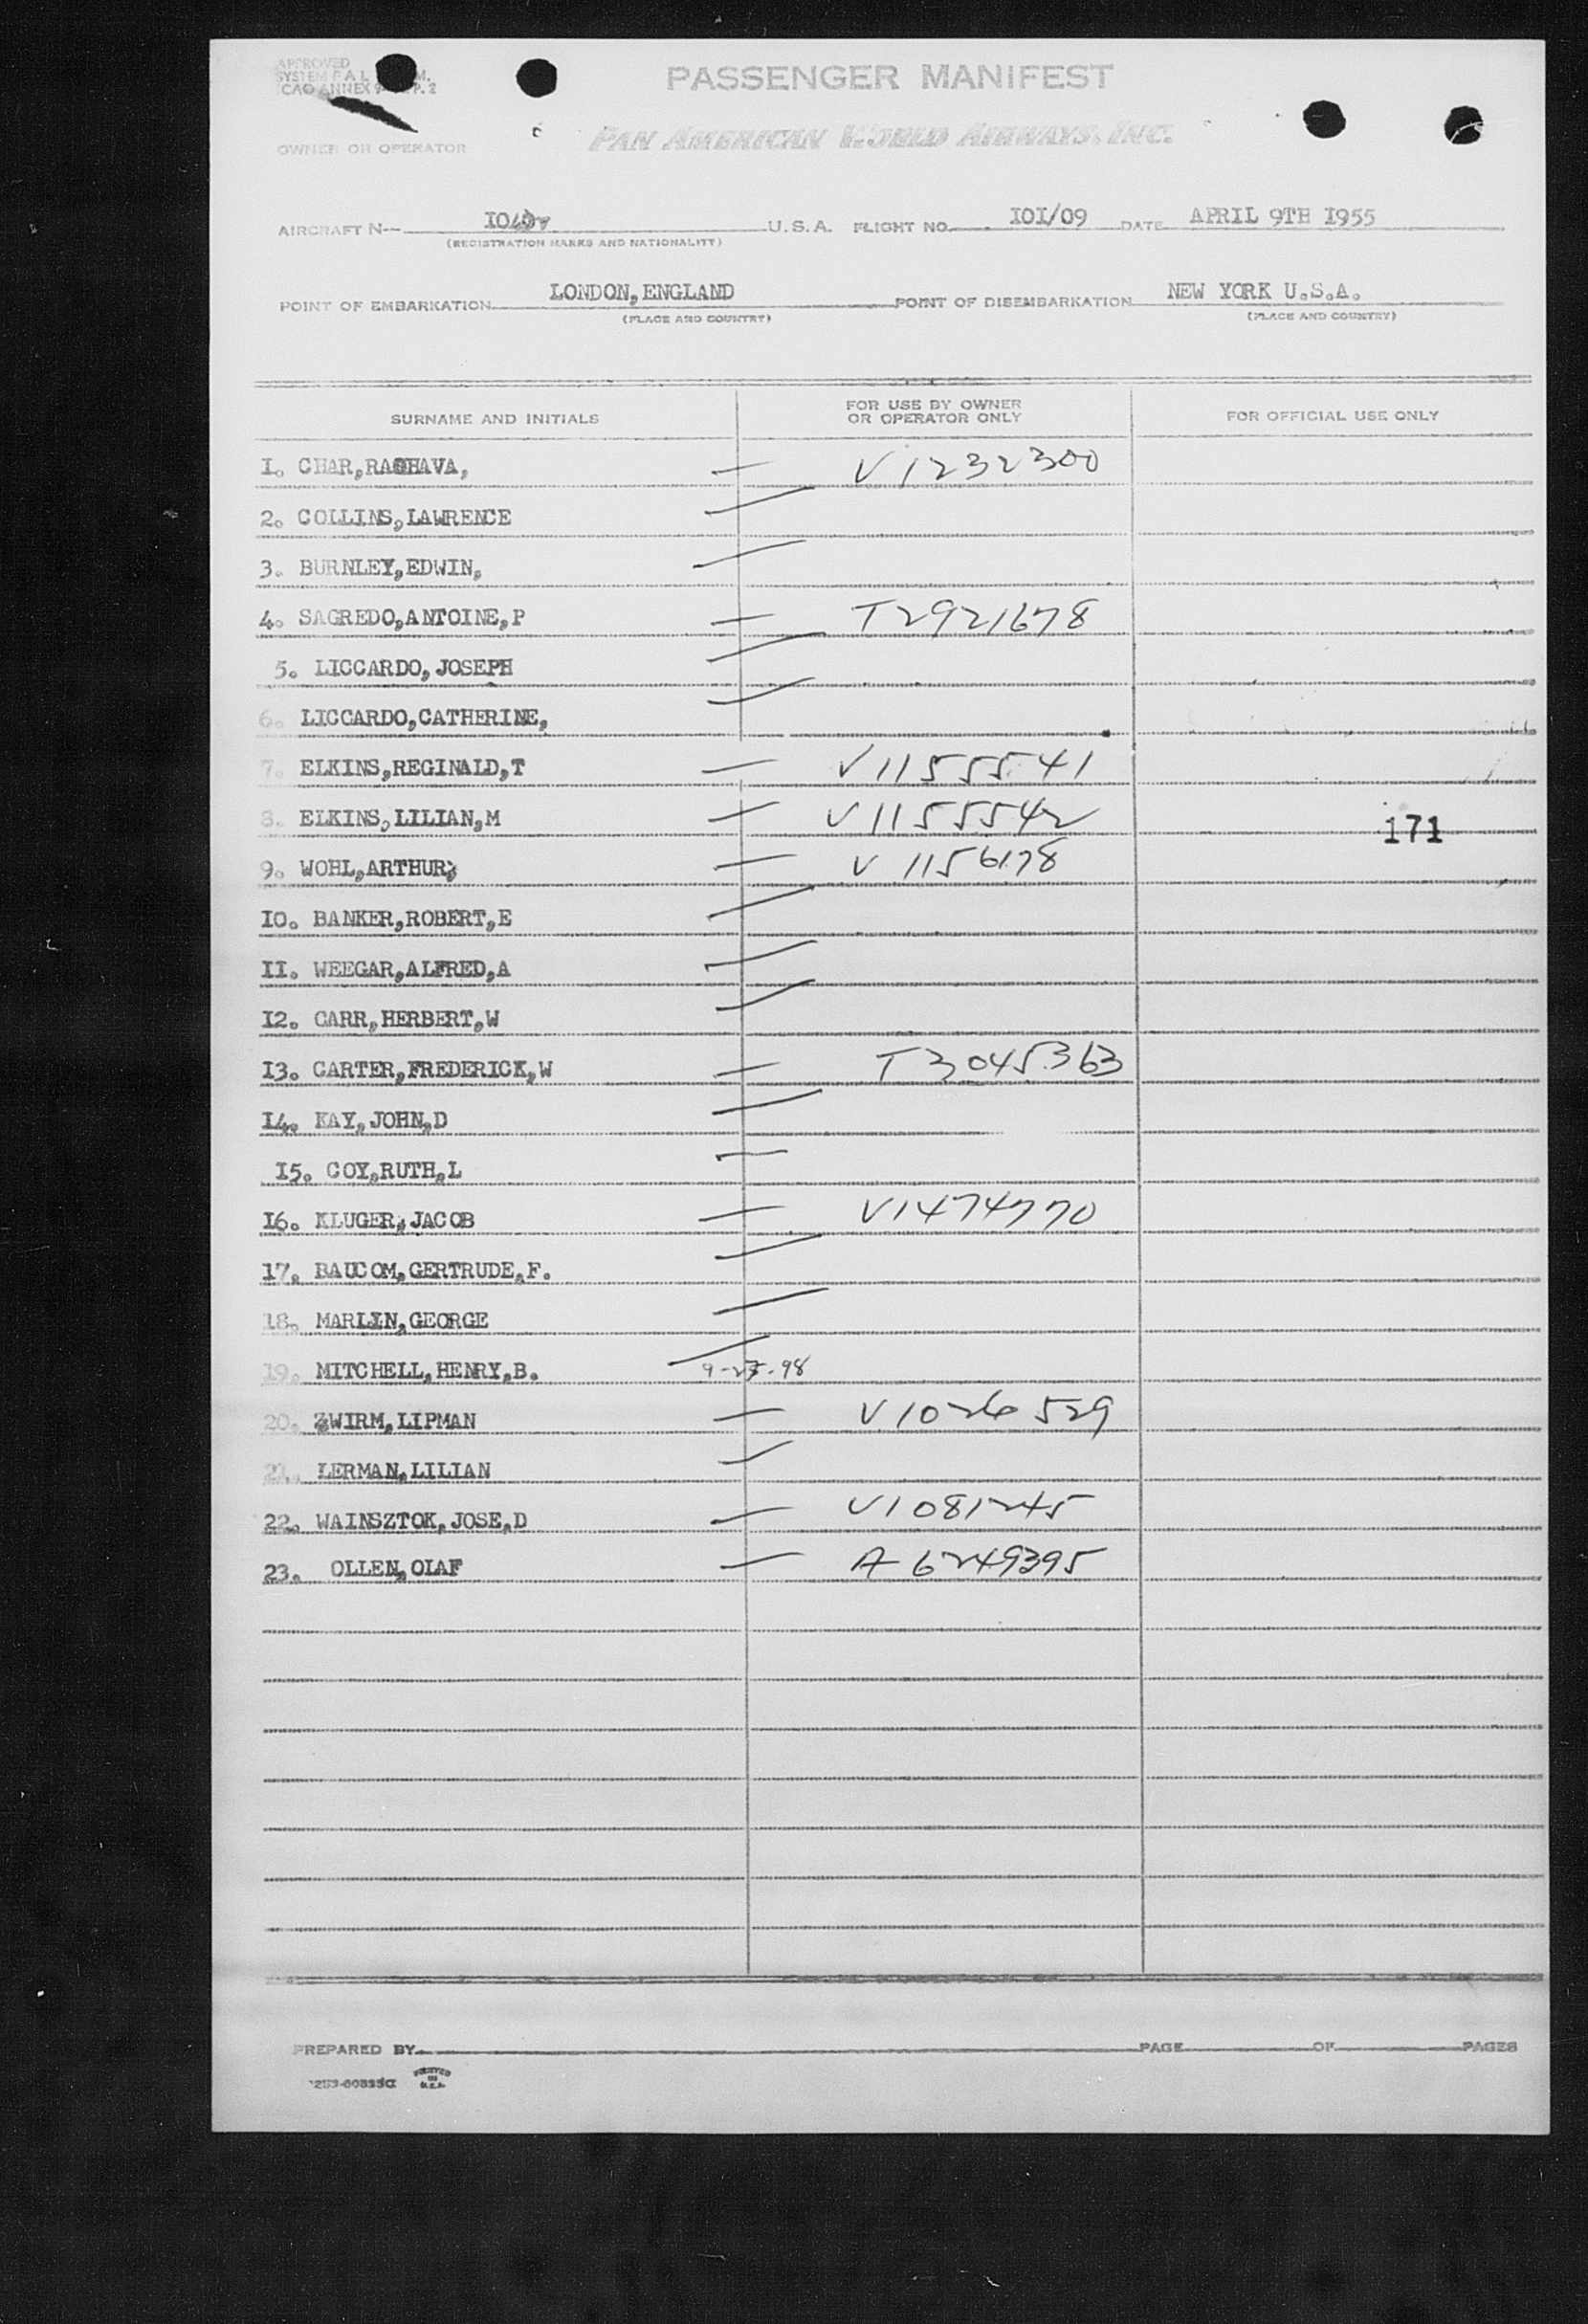 APPROVED
SYSTEM F A L M.
ICAO ANNEX 9 P. 2
PASSENGER MANIFEST
OWNER OR OPERATOR
PAN AMERICAN WORLD AIRWAYS, INC.
AIRCRAFT N-- U.S.A. FLIGHT NO. I0I/09 DATE APRIL 9TH I955
(REGISTRATION MARKS AND NATIONALITY)
POINT OF EMBARKATION LONDON,ENGLAND POINT OF DISEMBARKATION NEW YORK U.S.A.
(PLACE AND COUNTRY) (PLACE AND COUNTRY)
SURNAME AND INITIALS FOR USE BY OWNER OR OPERATOR ONLY FOR OFFICIAL USE ONLY
I. CHAR,RAGHAVA, — V1232300
2. COLLINS,LAWRENCE
3. BURNLEY,EDWIN,
4. SAGREDO,ANTOINE,P — T2921678
5. LICCARDO,JOSEPH
6. LICCARDO,CATHERINE,
7. ELKINS,REGINALD,T — V1155541
8. ELKINS,LILIAN,M — V1155542 171
9. WOHL,ARTHUR, — V 1156178
I0. BANKER,ROBERT,E
II. WEEGAR,ALFRED,A
I2. CARR,HERBERT,W
I3. CARTER,FREDERICK,W — T3045363
I4. KAY,JOHN,D
I5. COY,RUTH,L
I6. KLUGER,JACOB — V1474770
I7. BAUCOM,GERTRUDE,F.
I8. MARLIN,GEORGE
I9. MITCHELL,HENRY,B. 9-27-98
20. ZWIRM,LIPMAN — V1026529
2I. LERMAN,LILIAN
22. WAINSZTOK,JOSE,D — V1081245
23. OLLEN,OLAF — A 6249395
PREPARED BY PAGE OF PAGES
PRINTED IN U.S.A.